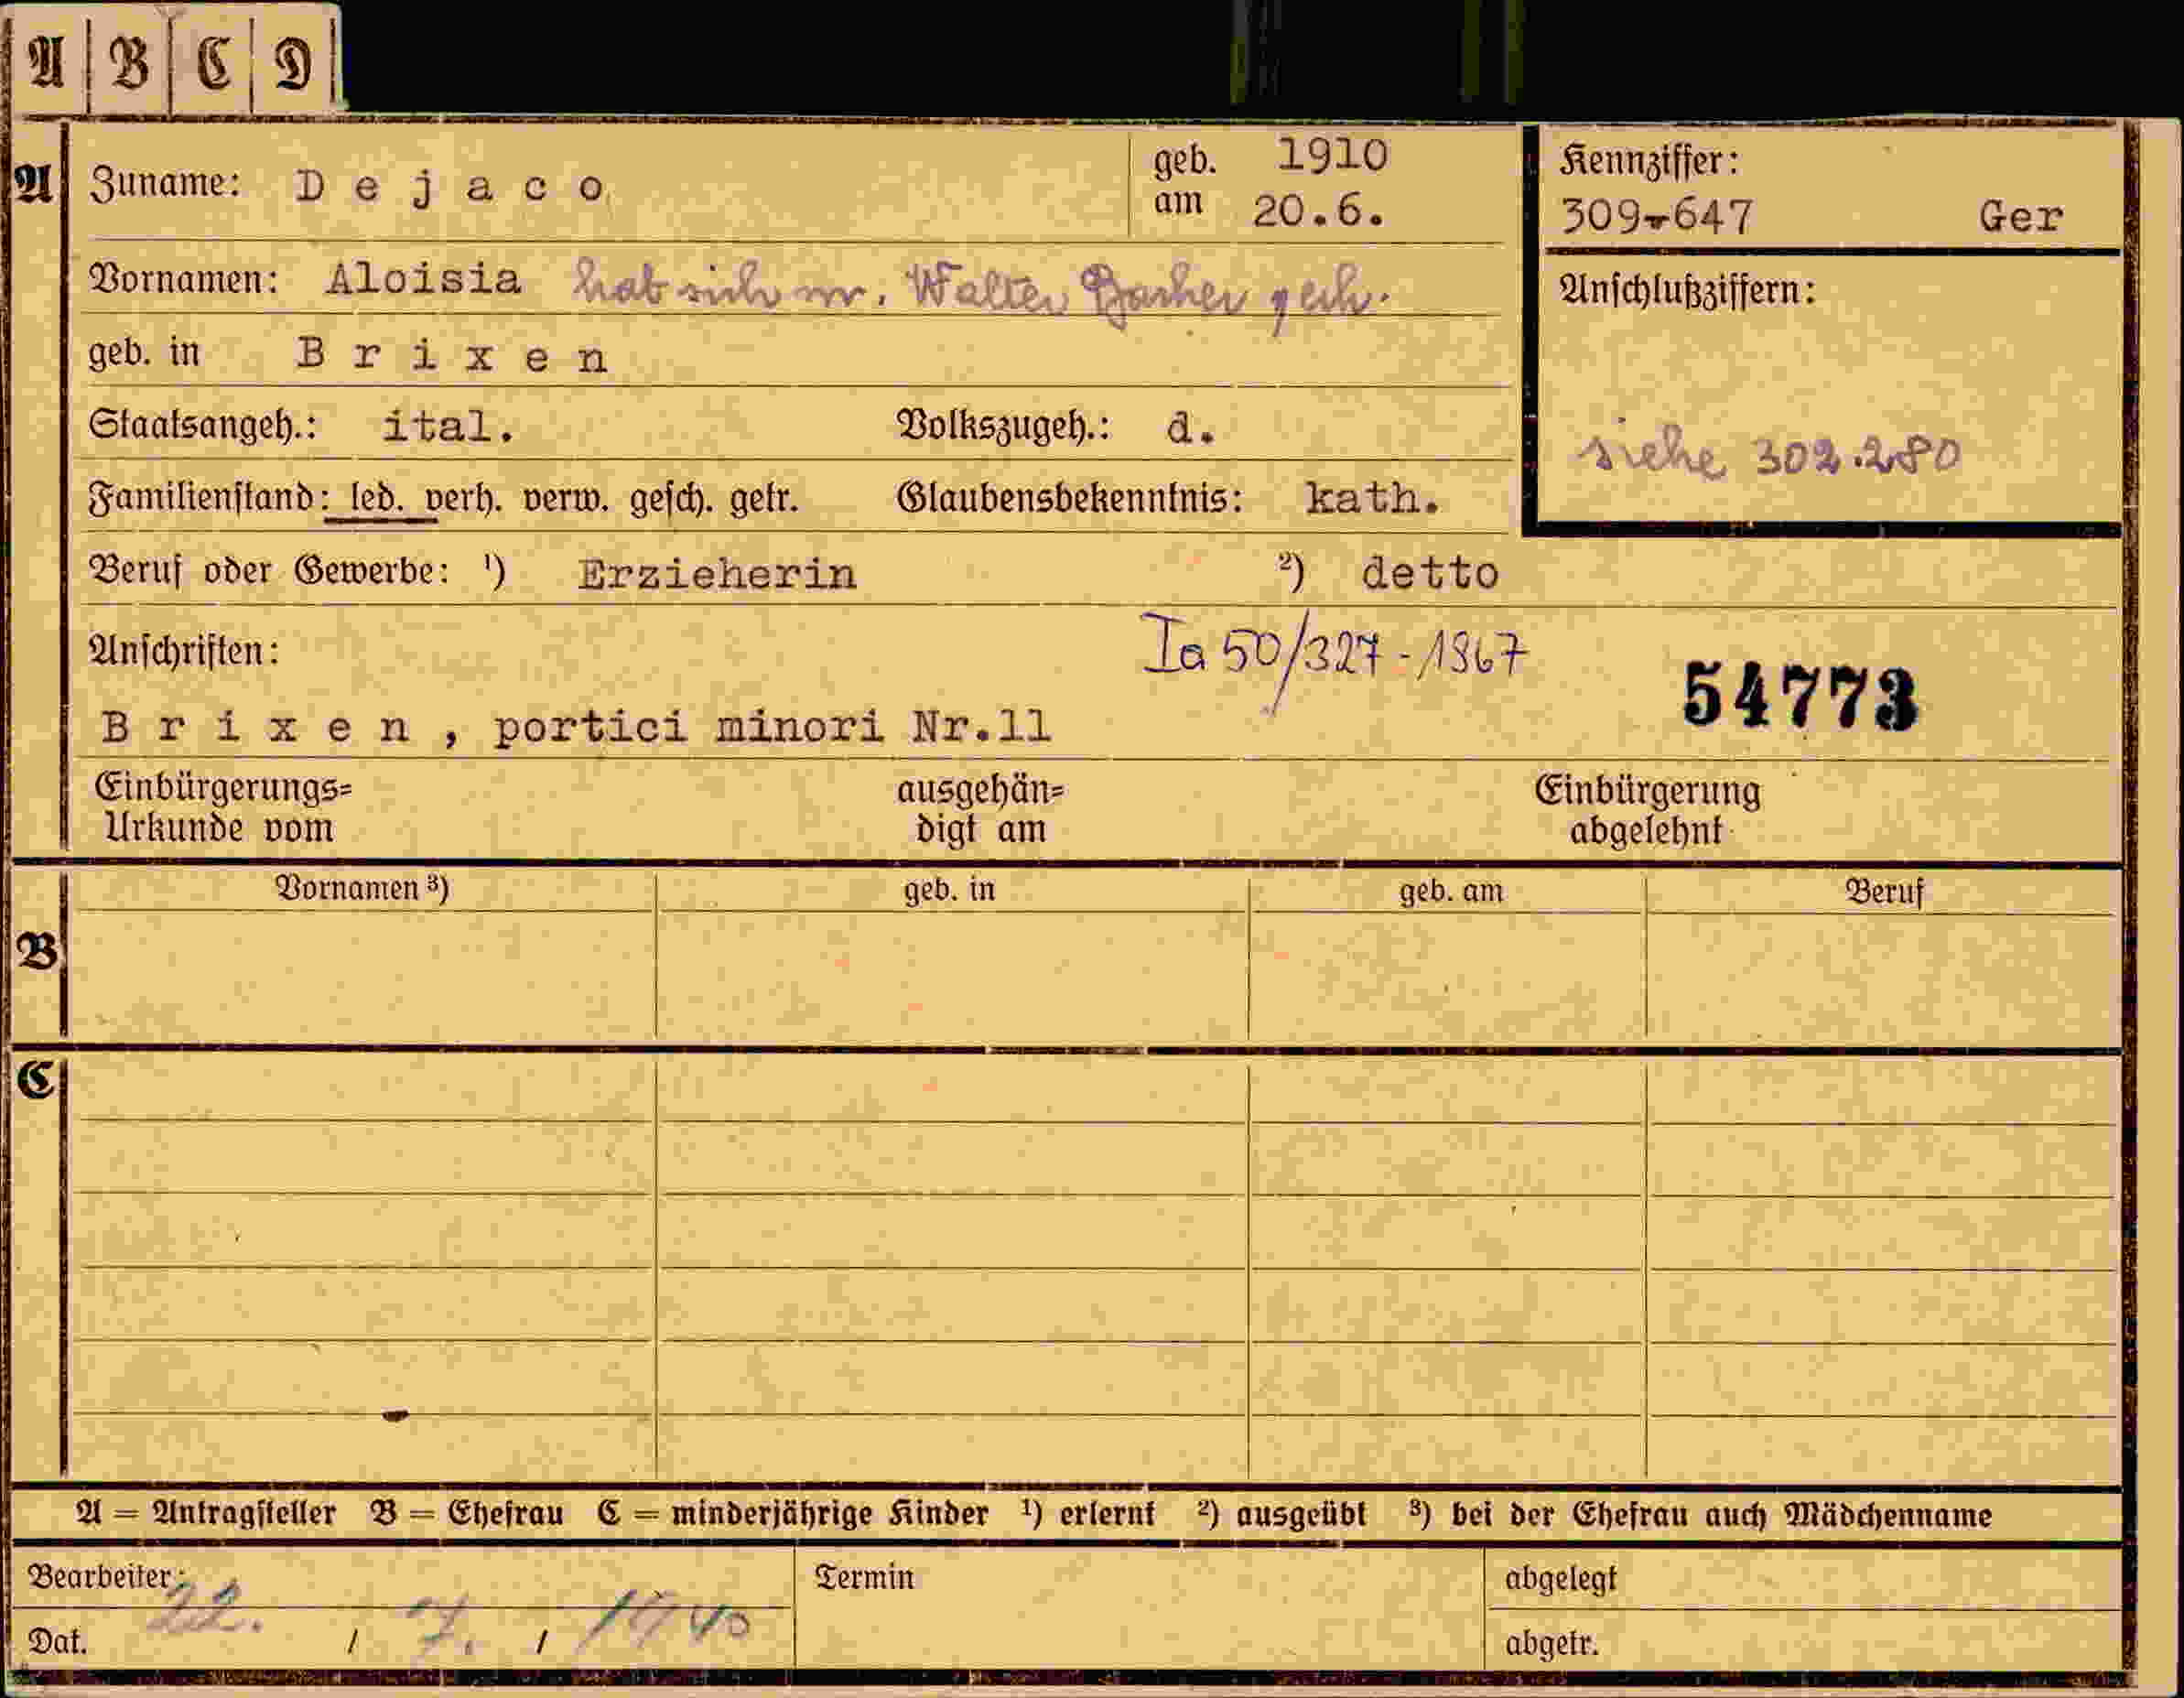 A B C D
A
Zuname: Dejaco
geb. am 1910 20.6.
Kennziffer:
309-647 Ger
Vornamen: Aloisia hat sich m. Walter gesch.
Anschlußziffern:
siehe 302.280
geb. in Brixen
Staatsangeh.: ital. Volkszugeh.: d.
Familienstand: led. verh. verw. gesch. getr. Glaubensbekenntnis: kath.
Beruf oder Gewerbe: ¹) Erzieherin ²) detto
Anschriften:
Ia 50/327-1967
54773
Brixen, portici minori Nr.11
Einbürgerungs=
Urkunde vom
ausgehän=
digt am
Einbürgerung
abgelehnt
B
Vornamen ³) geb. in geb. am Beruf
C
A = Antragsteller B = Ehefrau C = minderjährige Kinder ¹) erlernt ²) ausgeübt ³) bei der Ehefrau auch Mädchenname
Bearbeiter:
Dat. 22. / 7. / 1940
Termin
abgelegt
abgetr.